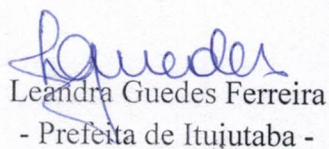 LGuedes
Leandra Guedes Ferreira
- Prefeita de Itujutaba -